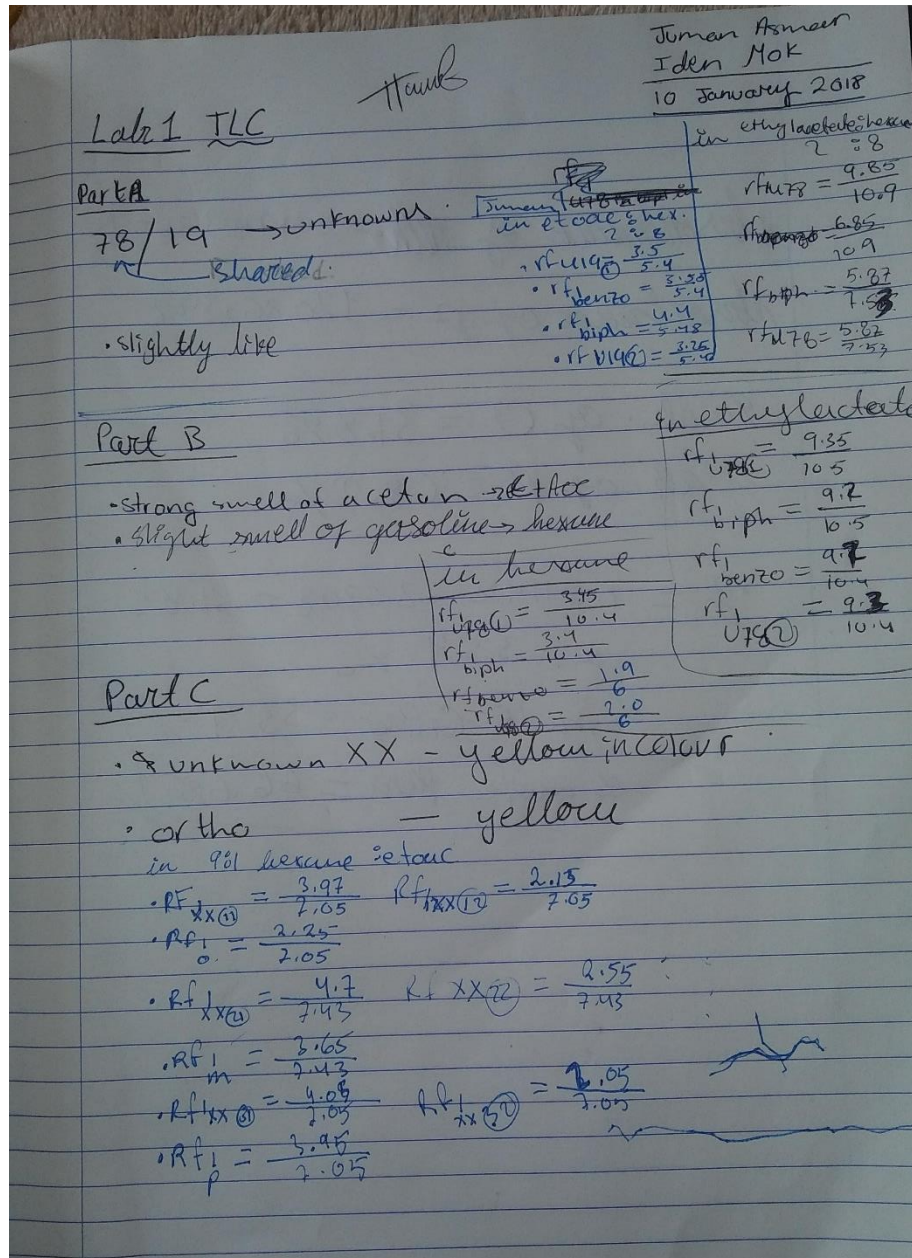 Juman Asmeer
Iden Mok
10 January 2018
Lab 1 TLC
Part A
78/19 → unknowns.
shared
• slightly like
in etoac : hex.
2 : 8
• rfu19① = 3.5/5.4
• rf benzo = /5.4
• rf biph = 4.4/5.48
• rf U19② = 3.25/
in ethylacetate : hexane
2 : 8
rfu78 = 9.85/10.9
6.85/10.9
rf biph = 5.87/
rfu78 = 5.87/7.53
Part B
• strong smell of acetan → EtAoc
• slight smell of gasoline → hexane
in ethylactate
rf U78 = 9.35/10.5
rf biph = 9.2/10.5
rf benzo = /10.4
rf U78② = /10.4
in hexane
rf U78① = 3.45/10.4
rf biph = 3.4/10.4
rf benzo = 1.9/6
rf ② = 2.0/6
Part C
• unknown XX - yellow in colour
• ortho — yellow
in 9:1 hexane : etoac
• RF XX⑪ = 3.97/7.05 Rf XX⑫ = 2.15/7.05
• Rf o. = 2.25/7.05
• Rf XX㉑ = 4.7/7.43 Rf XX㉒ = 2.55/7.43
• Rf m = 3.65/7.43
• Rf XX㉛ = /7.05 Rf XX = /7.05
• Rf p = 3.95/7.05